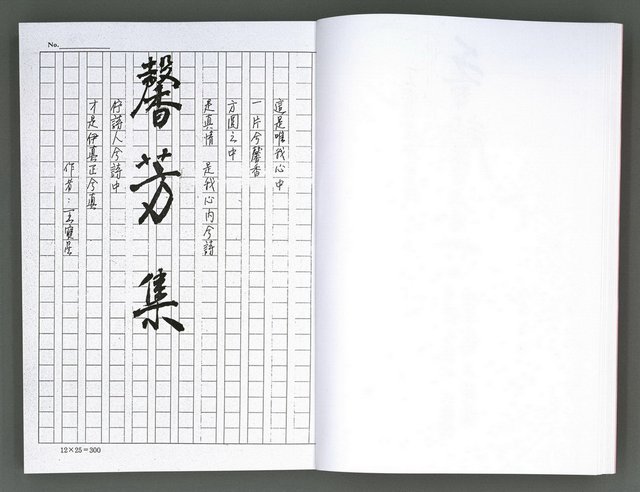 No.
這是唯我心中
一片兮馨香
方圓之中
是真情 是我心內兮詩
馨芳集
佇詩人兮詩中
才是伊真正兮真
作者：王寶星
12×25=300